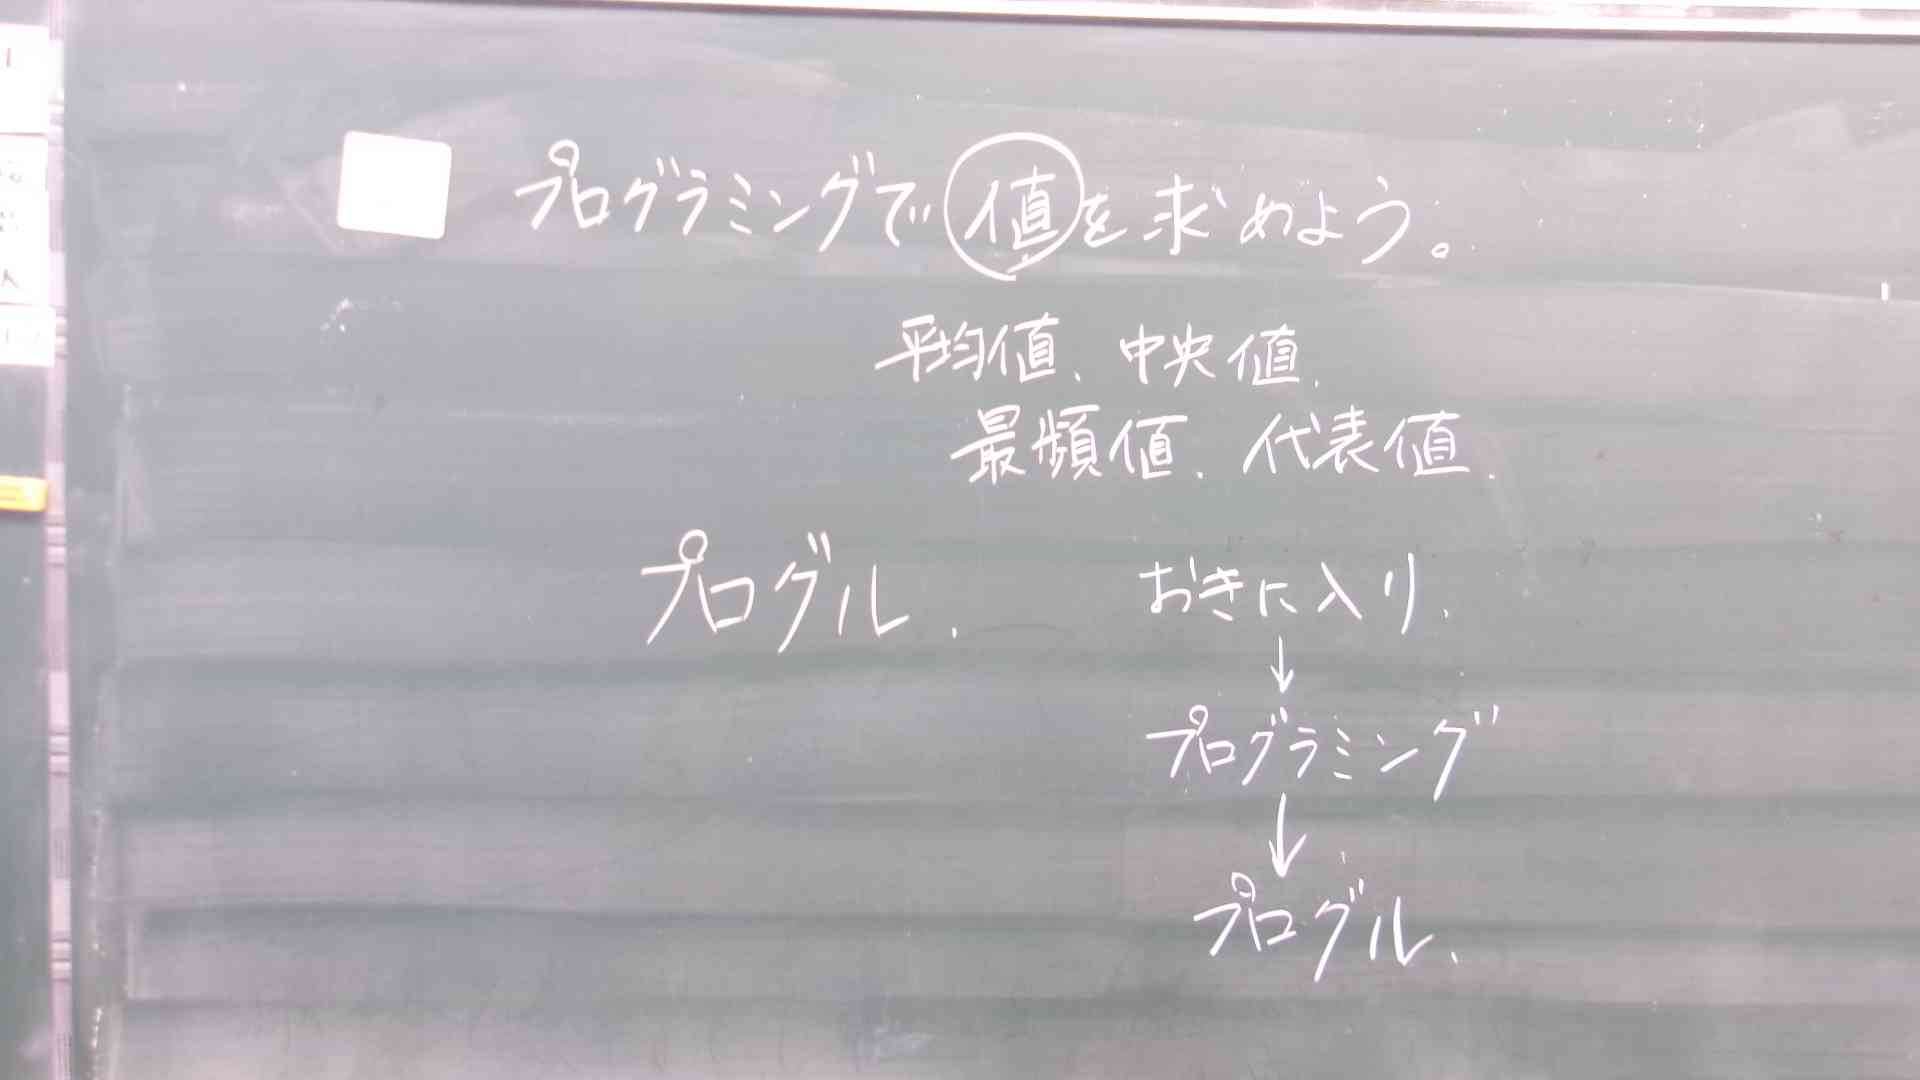 プログラミングで値を求めよう。
平均値、中央値、
最頻値、代表値、
プログル、
おきに入り、
↓
プログラミング
↓
プログル、